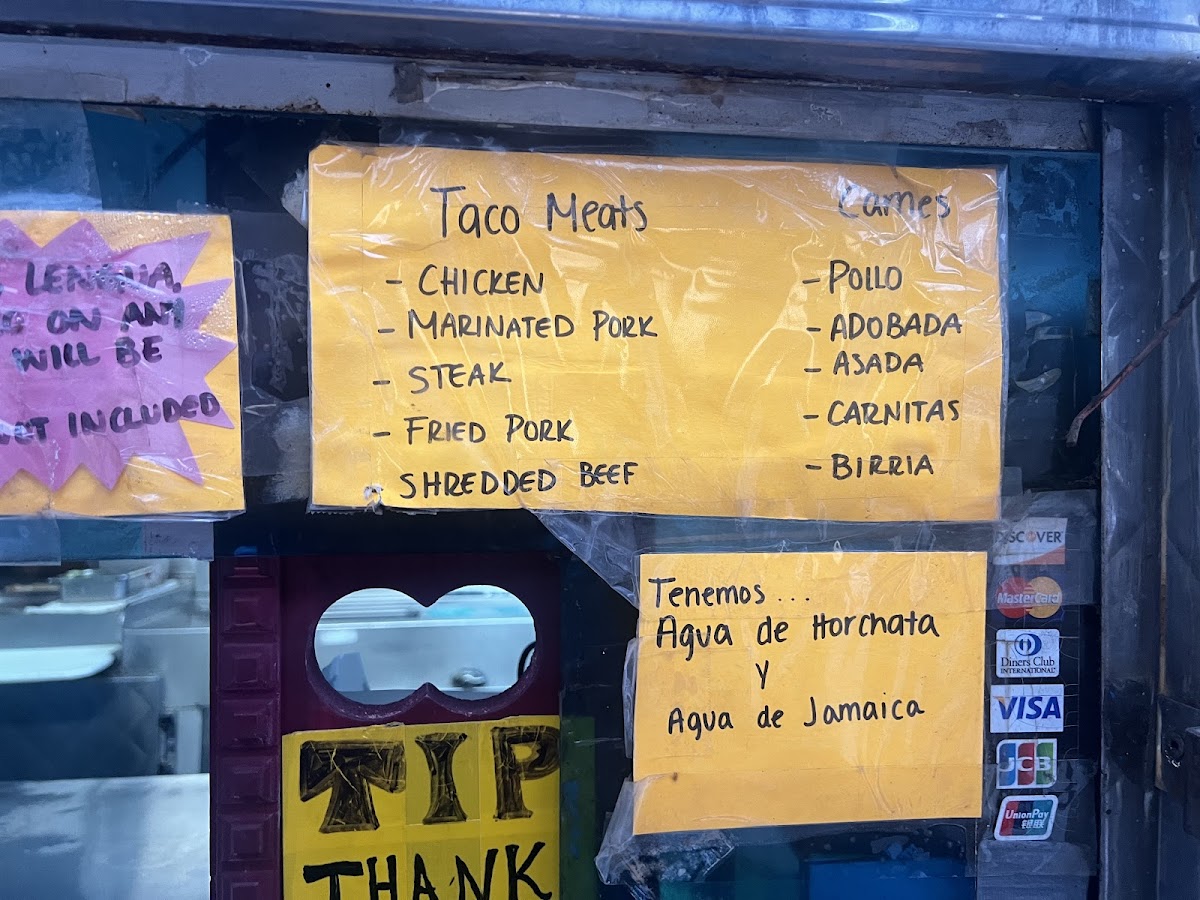 LENGUA,
ON ANY
WILL BE
NOT INCLUDED
Taco Meats
- CHICKEN
- MARINATED PORK
- STEAK
- FRIED PORK
SHREDDED BEEF
Carnes
- POLLO
- ADOBADA
- ASADA
- CARNITAS
- BIRRIA
Tenemos...
Agua de Horchata
Y
Agua de Jamaica
TIP
THANK
DISCOVER
MasterCard
Diners Club
INTERNATIONAL
VISA
JCB
UnionPay
银联